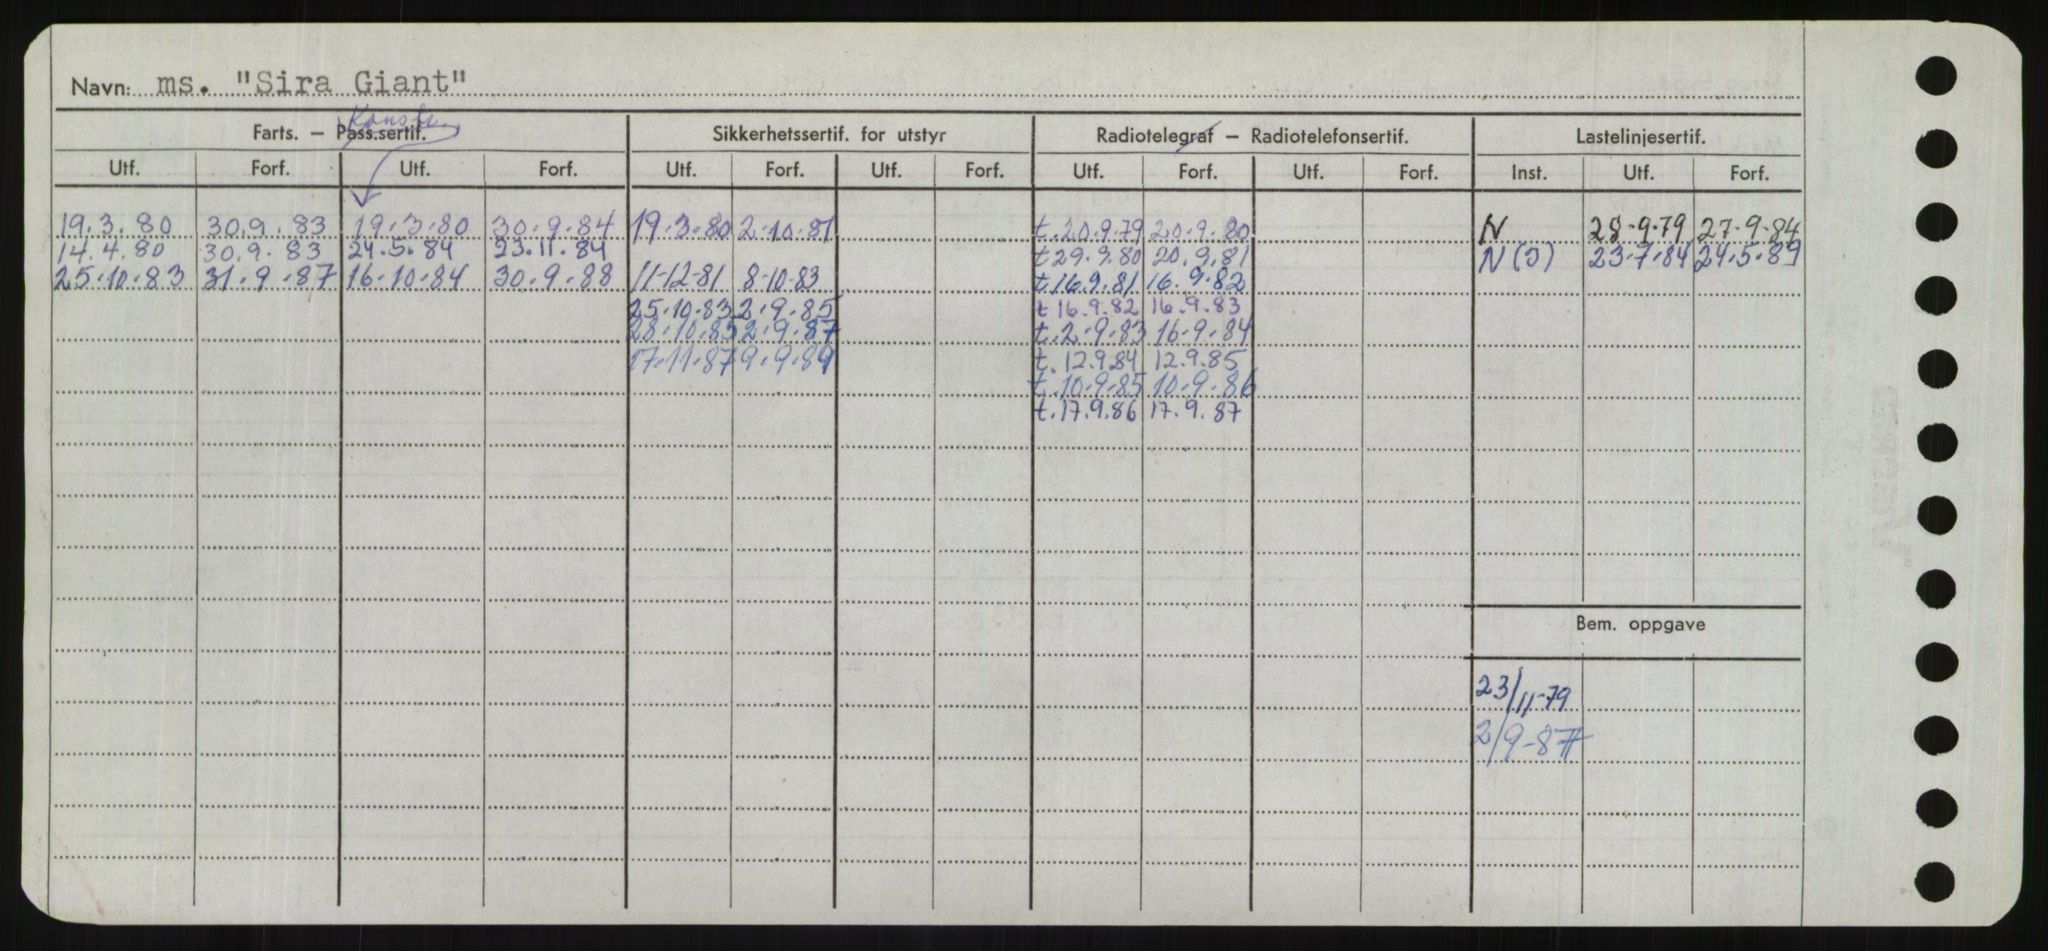 Navn: ms. "Sira Giant"
Konstr.
Farts. – Pass.sertif. Sikkerhetssertif. for utstyr Radiotelegraf – Radiotelefonsertif. Lastelinjesertif.
Utf. Forf. Utf. Forf. Utf. Forf. Utf. Forf. Utf. Forf. Utf. Forf. Inst. Utf. Forf.
19.3.80 30.9.83 19.3.80 30.9.84 19.3.80 2.10.81 t.20.9.79 20.9.80 N 28.9.79 27.9.84
14.4.80 30.9.83 24.5.84 23.11.84 t29.9.80 20.9.81 N(J) 23.7.84 24.5.89
25.10.83 31.9.87 16.10.84 30.9.88 11-12-81 8-10-83 t.16.9.81 16.9.82
25.10.83 2.9.85 t 16.9.82 16.9.83
28.10.85 2.9.87 t.2.9.83 16.9.84
17.11.87 9.9.89 t.12.9.84 12.9.85
t.10.9.85 10.9.86
t.17.9.86 17.9.87
Bem. oppgave
23/11-79
2/9-87